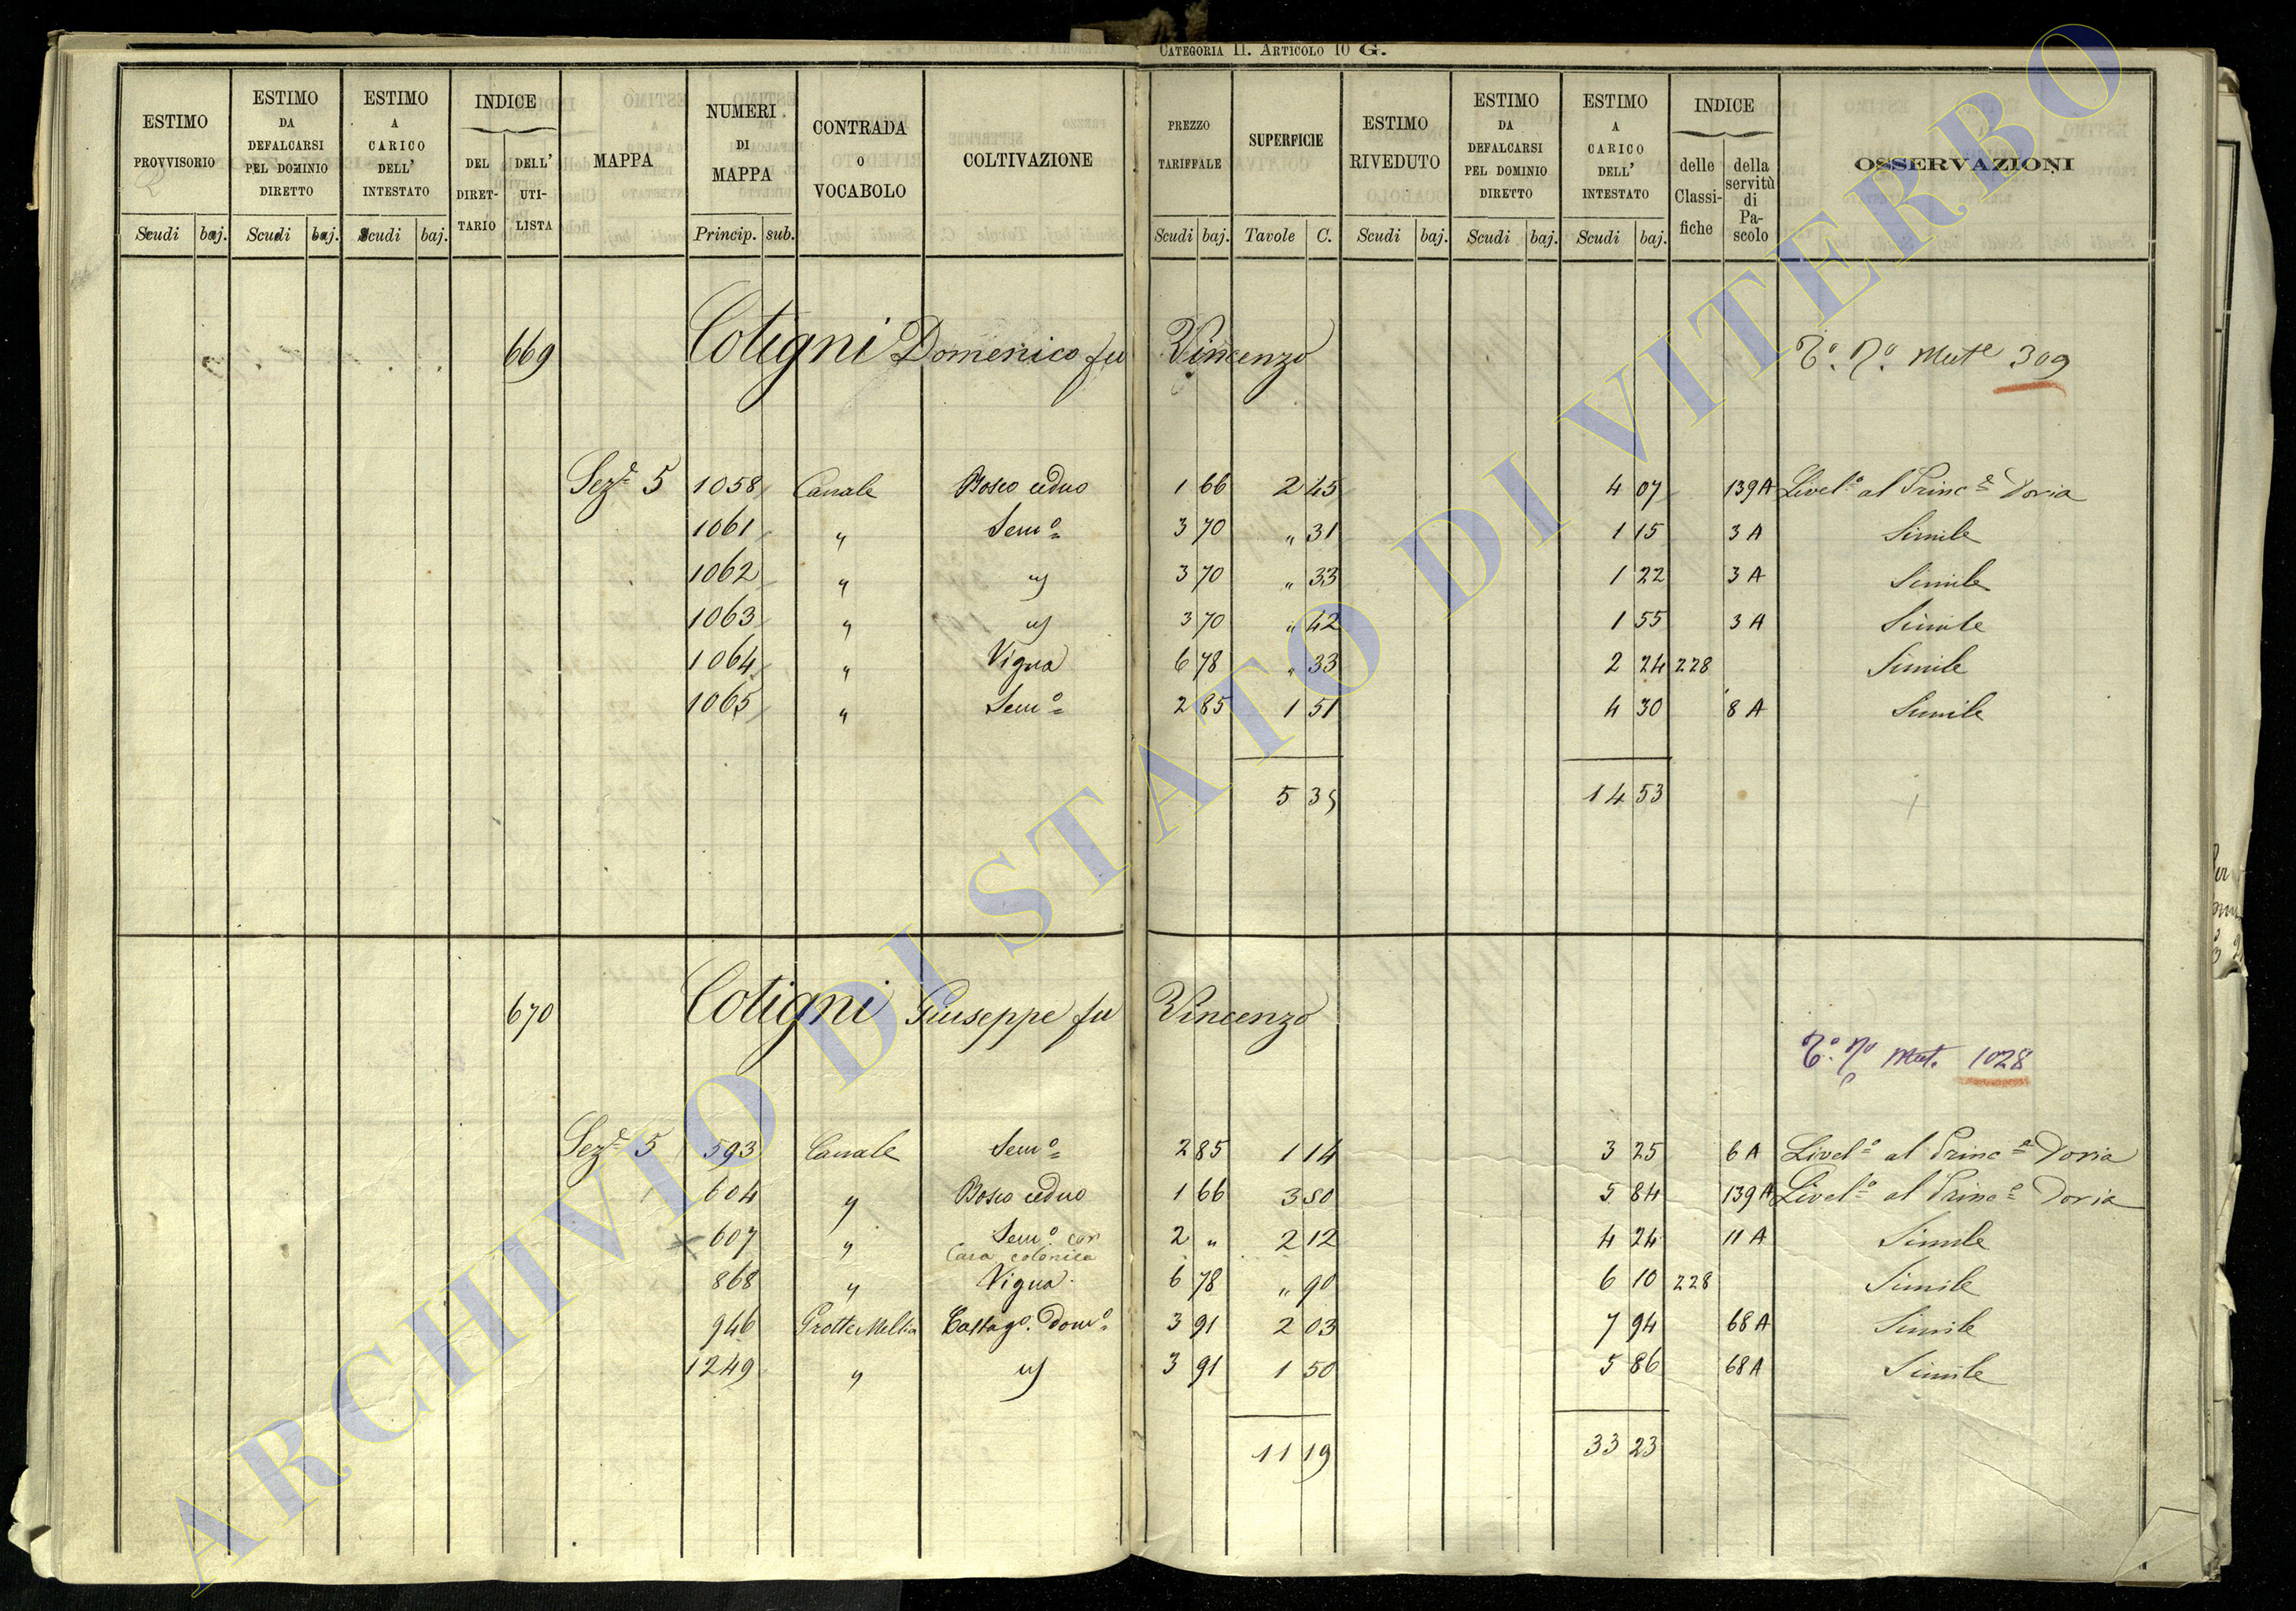 CATEGORIA II. ARTICOLO 10 G.
ESTIMO PROVVISORIO Scudi baj. ESTIMO DA DEFALCARSI PEL DOMINIO DIRETTO Scudi baj. ESTIMO A CARICO DELL' INTESTATO Scudi baj. INDICE DEL DIRET- TARIO DELL' UTI- LISTA MAPPA NUMERI DI MAPPA Princip. sub. CONTRADA O VOCABOLO COLTIVAZIONE PREZZO TARIFFALE Scudi baj. SUPERFICIE Tavole C. ESTIMO RIVEDUTO Scudi baj. ESTIMO DA DEFALCARSI PEL DOMINIO DIRETTO Scudi baj. ESTIMO A CARICO DELL' INTESTATO Scudi baj. INDICE delle Classi- fiche della servitù di Pa- scolo OSSERVAZIONI
669 Cotigni Domenico fu Vincenzo Mut.e 309
Sez.e 5 1058 Canale Bosco ceduo 1 66 2 45 4 07 139A Livel.o al Princ.e Doria
1061 " Sem.o 3 70 " 31 1 15 3 A Simile
1062 " " 3 70 " 33 1 22 3 A Simile
1063 " " 3 70 " 42 1 55 3 A Simile
1064 " Vigna 6 78 " 33 2 24 228 Simile
1065 " Sem.o 2 85 1 51 4 30 8 A Simile
5 35 14 53
670 Cotigni Giuseppe fu Vincenzo
Mut. 1028
Sez.e 5 593 Canale Sem.o 2 85 1 14 3 25 6 A Livel.o al Princ.e Doria
604 " Bosco ceduo 1 66 3 50 5 84 139A Livel.o al Princ.e Doria
607 " Sem.o con 2 " 2 12 4 24 11 A Simile
Casa colonica
868 " Vigna 6 78 " 90 6 10 228 Simile
946 Grotte Mellin Castag.o Dom.o 3 91 2 03 7 94 68 A Simile
1249 " " 3 91 1 50 5 86 68 A Simile
11 19 33 23
ARCHIVIO DI STATO DI VITERBO